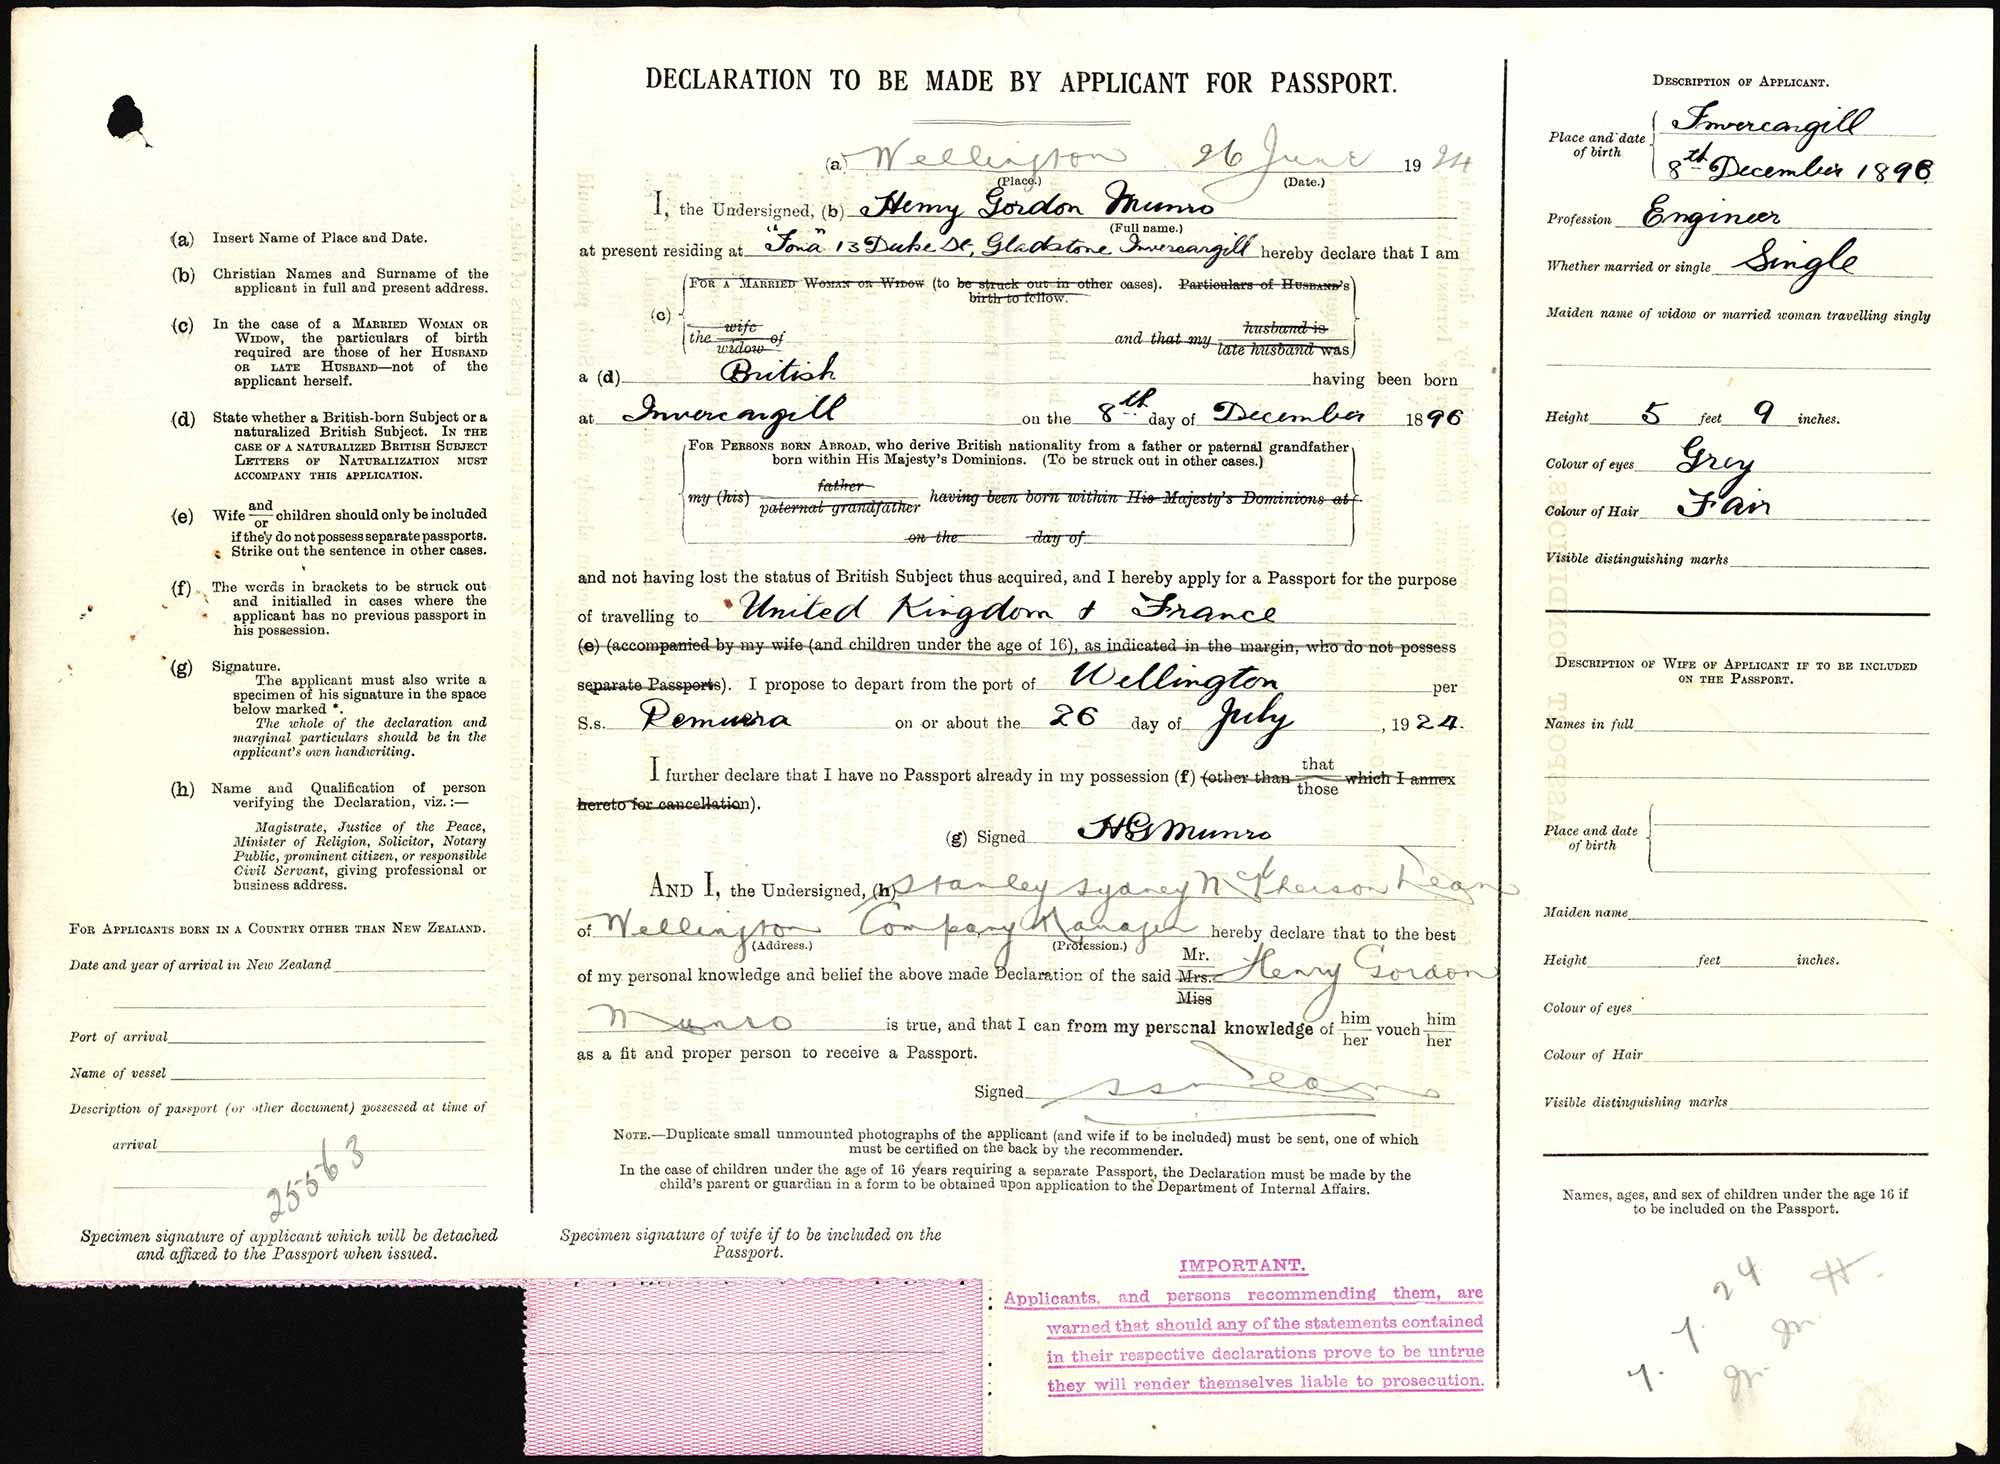 DECLARATION TO BE MADE BY APPLICANT FOR PASSPORT.
(a) Wellington 26 June 1924
(Place.) (Date.)
I, the Undersigned, (b) Henry Gordon Munro
(Full name.)
at present residing at "Iona" 13 Duke St, Gladstone Invercargill hereby declare that I am
(c)
FOR A MARRIED WOMAN OR WIDOW (to be struck out in other cases). Particulars of HUSBAND's
birth to follow.
the wife of and that my husband is
widow late husband was
a (d) British having been born
at Invercargill on the 8th day of December 1896
FOR PERSONS BORN ABROAD, who derive British nationality from a father or paternal grandfather
born within His Majesty's Dominions. (To be struck out in other cases.)
my (his) father having been born within His Majesty's Dominions at
paternal grandfather
on the day of
and not having lost the status of British Subject thus acquired, and I hereby apply for a Passport for the purpose
of travelling to United Kingdom & France
(e) (accompanied by my wife (and children under the age of 16), as indicated in the margin, who do not possess
separate Passports). I propose to depart from the port of Wellington per
S.s. Remuera on or about the 26 day of July, 1924.
I further declare that I have no Passport already in my possession (f) (other than that which I annex
those
hereto for cancellation).
(g) Signed HGMunro
AND I, the Undersigned, (h) Stanley Sydney McPherson Dean
of Wellington Company Manager hereby declare that to the best
(Address.) (Profession.)
of my personal knowledge and belief the above made Declaration of the said Mr. Henry Gordon
Mrs.
Miss
Munro is true, and that I can from my personal knowledge of him vouch him
her her
as a fit and proper person to receive a Passport.
Signed SSMDean
NOTE.—Duplicate small unmounted photographs of the applicant (and wife if to be included) must be sent, one of which
must be certified on the back by the recommender.
In the case of children under the age of 16 years requiring a separate Passport, the Declaration must be made by the
child's parent or guardian in a form to be obtained upon application to the Department of Internal Affairs.
Specimen signature of wife if to be included on the
Passport.
IMPORTANT.
Applicants, and persons recommending them, are
warned that should any of the statements contained
in their respective declarations prove to be untrue
they will render themselves liable to prosecution.
(a) Insert Name of Place and Date.
(b) Christian Names and Surname of the
applicant in full and present address.
(c) In the case of a MARRIED WOMAN OR
WIDOW, the particulars of birth
required are those of her HUSBAND
OR LATE HUSBAND—not of the
applicant herself.
(d) State whether a British-born Subject or a
naturalized British Subject. IN THE
CASE OF A NATURALIZED BRITISH SUBJECT
LETTERS OF NATURALIZATION MUST
ACCOMPANY THIS APPLICATION.
(e) Wife and/or children should only be included
if they do not possess separate passports.
Strike out the sentence in other cases.
(f) The words in brackets to be struck out
and initialled in cases where the
applicant has no previous passport in
his possession.
(g) Signature.
The applicant must also write a
specimen of his signature in the space
below marked *.
The whole of the declaration and
marginal particulars should be in the
applicant's own handwriting.
(h) Name and Qualification of person
verifying the Declaration, viz.:—
Magistrate, Justice of the Peace,
Minister of Religion, Solicitor, Notary
Public, prominent citizen, or responsible
Civil Servant, giving professional or
business address.
FOR APPLICANTS BORN IN A COUNTRY OTHER THAN NEW ZEALAND.
Date and year of arrival in New Zealand
Port of arrival
Name of vessel
Description of passport (or other document) possessed at time of
arrival
25563
Specimen signature of applicant which will be detached
and affixed to the Passport when issued.
DESCRIPTION OF APPLICANT.
Place and date of birth
Invercargill
8th December 1896
Profession Engineer
Whether married or single Single
Maiden name of widow or married woman travelling singly
Height 5 feet 9 inches.
Colour of eyes Grey
Colour of Hair Fair
Visible distinguishing marks
DESCRIPTION OF WIFE OF APPLICANT IF TO BE INCLUDED
ON THE PASSPORT.
Names in full
Place and date
of birth
Maiden name
Height feet inches.
Colour of eyes
Colour of Hair
Visible distinguishing marks
Names, ages, and sex of children under the age 16 if
to be included on the Passport.
24